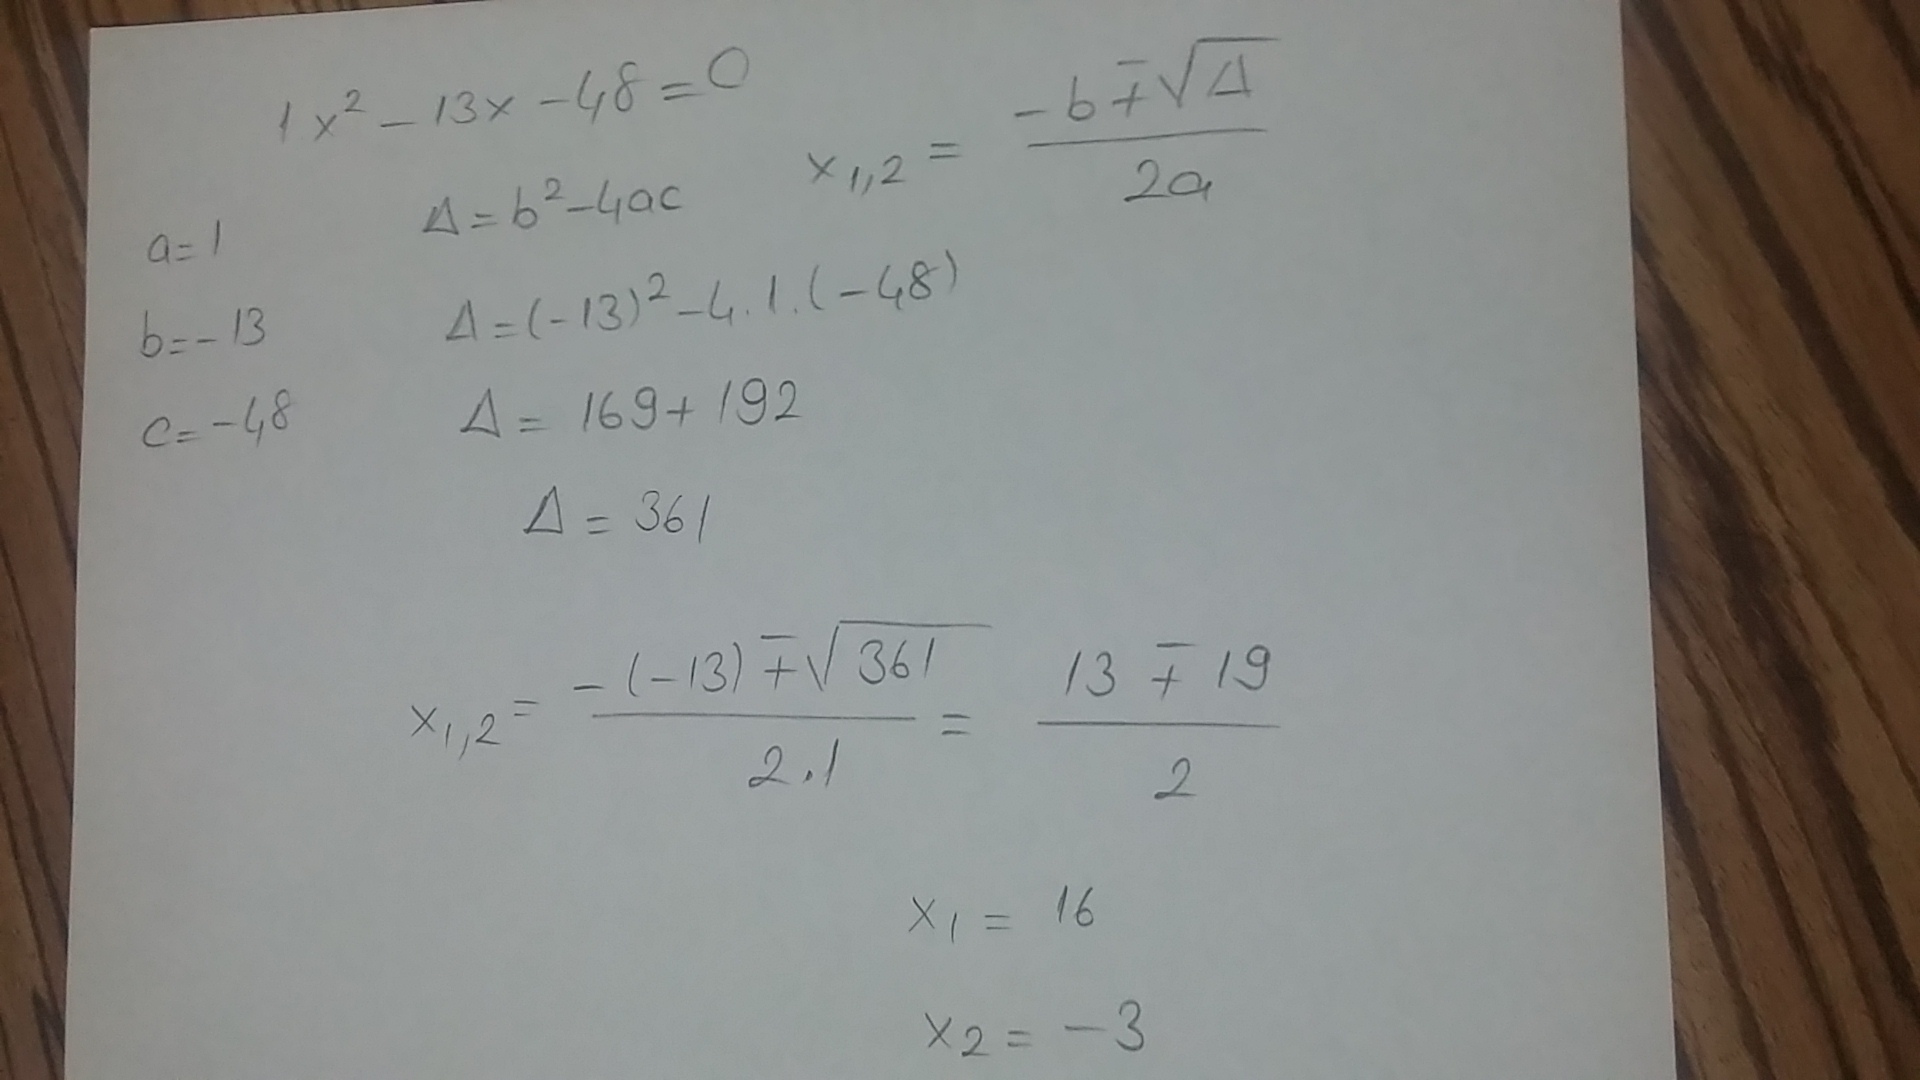 1x² - 13x - 48 = 0
x₁,₂ = (-b ∓ √Δ) / 2a
a = 1
Δ = b² - 4ac
b = -13
Δ = (-13)² - 4.1.(-48)
c = -48
Δ = 169 + 192
Δ = 361
x₁,₂ = (-(-13) ∓ √361) / 2.1 = (13 ∓ 19) / 2
x₁ = 16
x₂ = -3